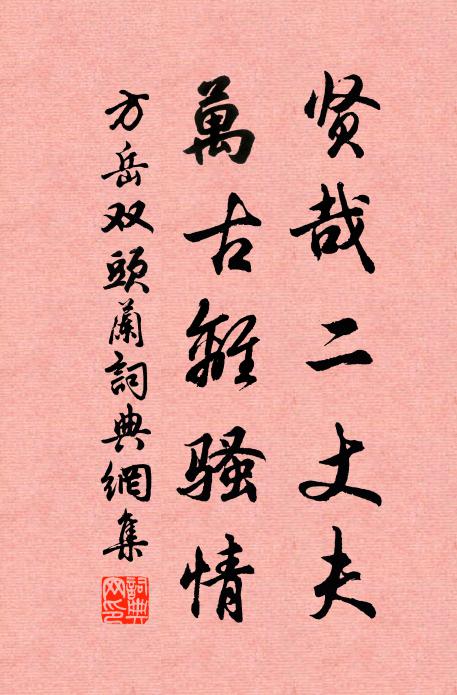 贤哉二丈夫
萬古離騷情
方岳双頭蘭詞典網集
詞典网印